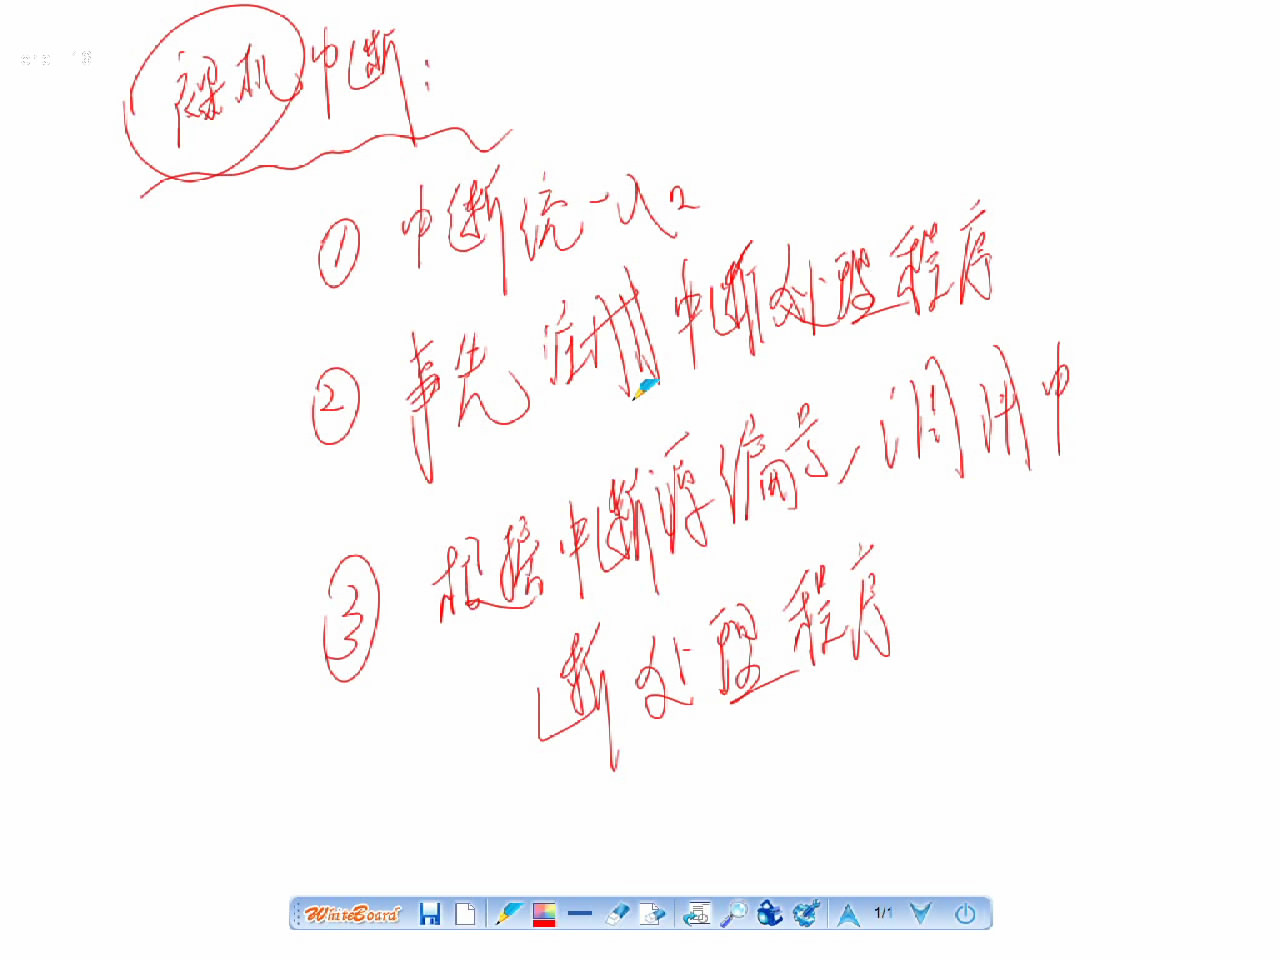 裸机中断:
① 中断统一入口
② 事先注册中断处理程序
③ 根据中断源编号,调用中
断处理程序
WhiteBoard
1/1